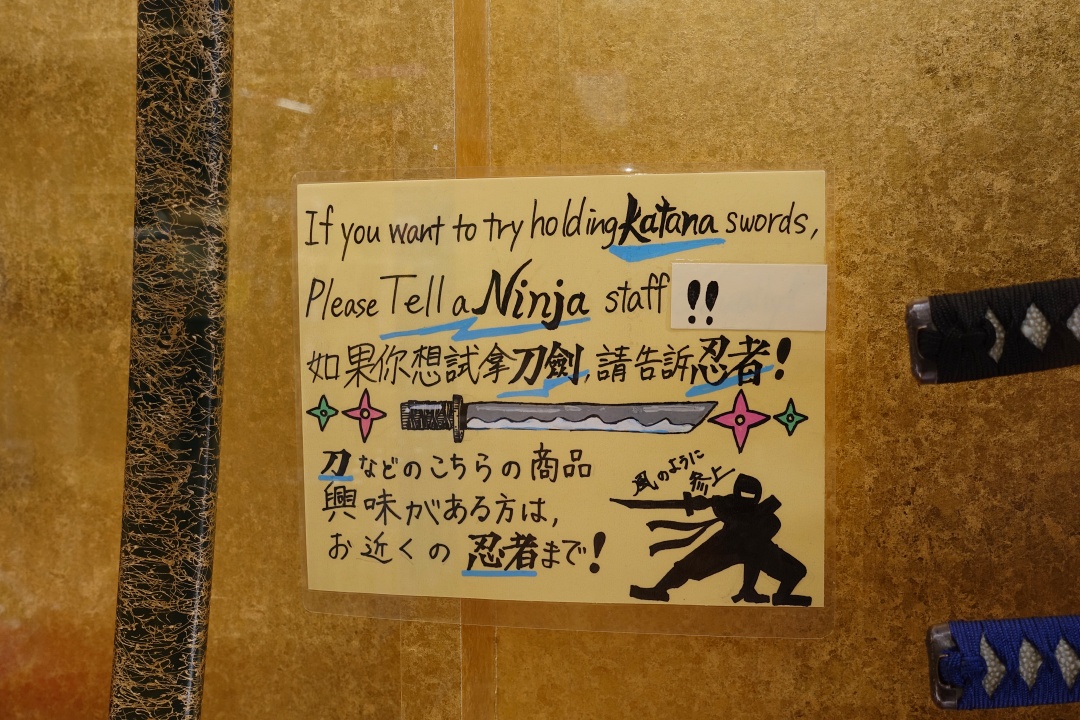 If you want to try holding katana swords,
Please Tell a Ninja staff !!
如果你想試拿刀劍,請告訴忍者!
刀などのこちらの商品
興味がある方は,
お近くの忍者まで!
風のように
参上